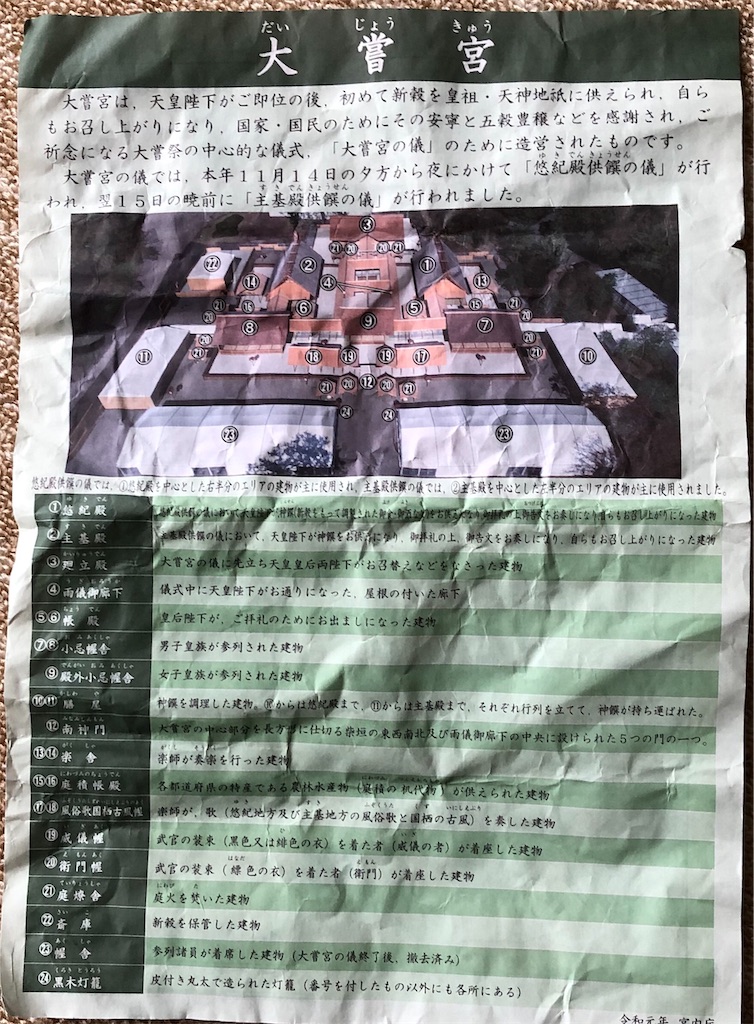 だい じょう きゅう
大嘗宮
大嘗宮は，天皇陛下がご即位の後，初めて新穀を皇祖・天神地祇に供えられ，自ら
もお召し上がりになり，国家・国民のためにその安寧と五穀豊穣などを感謝され，ご
祈念になる大嘗祭の中心的な儀式，「大嘗宮の儀」のために造営されたものです。
ゆきでんきょうせん
「大嘗宮の儀では，本年１１月１４日の夕方から夜にかけて「悠紀殿供饌の儀」が行
すきでんきょうせん
われ，翌１５日の暁前に「主基殿供饌の儀」が行われました。
③
㉑ ⑳ ⑳ ㉑
㉒ ② ①
⑭ ④ ⑬
㉑ ⑯ ⑥ ⑤ ⑮ ㉑
⑳ ⑧ ⑨ ⑦ ⑳
㉑ ⑳ ⑳ ㉑
⑪ ⑱ ⑲ ⑲ ⑰ ⑩
㉑ ⑳ ⑫ ⑳ ㉑
㉔ ㉔
㉓ ㉓
悠紀殿供饌の儀では，①悠紀殿を中心とした右半分のエリアの建物が主に使用され，主基殿供饌の儀では，②主基殿を中心とした左半分のエリアの建物が主に使用されました。
ゆきでん
①悠紀殿 悠紀殿供饌の儀において，天皇陛下が神饌(新穀をもって調理された御食・御酒など)をお供えになり，御拝礼の上，御告文をお奏しになり，自らもお召し上がりになった建物
すきでん
②主基殿 主基殿供饌の儀において，天皇陛下が神饌をお供えになり，御拝礼の上，御告文をお奏しになり，自らもお召し上がりになった建物
かいりゅうでん
③廻立殿 大嘗宮の儀に先立ち天皇皇后両陛下がお召替えなどをなさった建物
④雨儀御廊下 儀式中に天皇陛下がお通りになった，屋根の付いた廊下
ちょうでん
⑤⑥帳殿 皇后陛下が，ご拝礼のためにお出ましになった建物
おみあくしゃ
⑦⑧小忌幄舎 男子皇族が参列された建物
でんがいおみあくしゃ
⑨殿外小忌幄舎 女子皇族が参列された建物
かしわや
⑩⑪膳屋 神饌を調理した建物。⑩からは悠紀殿まで，⑪からは主基殿まで，それぞれ行列を立てて，神饌が持ち運ばれた。
⑫南神門 大嘗宮の中心部分を長方形に仕切る柴垣の東西南北及び雨儀御廊下の中央に設けられた５つの門の一つ。
がくしゃ
⑬⑭楽舎 楽師が奏楽を行った建物
にわづみのちょうでん
⑮⑯庭積帳殿 各都道府県の特産である農林水産物（庭積の机代物）が供えられた建物
⑰⑱風俗歌国栖古風幄 楽師が，歌（悠紀地方及び主基地方の風俗歌と国栖の古風）を奏した建物
⑲威儀幄 武官の装束（黒色又は緋色の衣）を着た者（威儀の者）が着座した建物
えもんあく
⑳衛門幄 武官の装束（縹色の衣）を着た者（衛門）が着座した建物
ていりょうしゃ
㉑庭燎舎 庭火を焚いた建物
さいこ
㉒斎庫 新穀を保管した建物
あくしゃ
㉓幄舎 参列諸員が着席した建物（大嘗宮の儀終了後，撤去済み）
くろきとうろう
㉔黒木灯籠 皮付き丸太で造られた灯籠（番号を付したもの以外にも各所にある）
令和元年 宮内庁